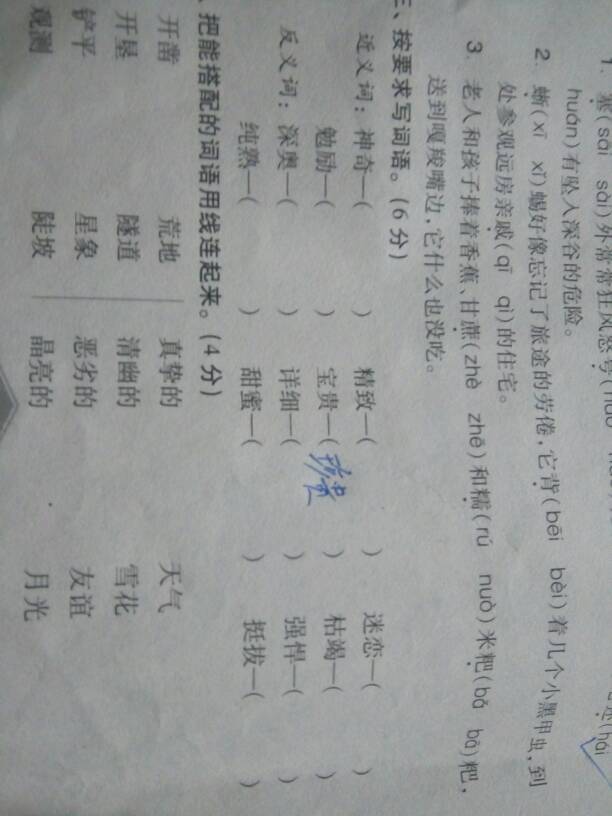 1. 塞(sāi sài)外常常狂风怒号(
huán)有坠入深谷的危险。
2. 蜥(xī xǐ)蜴好像忘记了旅途的劳倦,它背(bēi bèi)着几个小黑甲虫,到
处参观远房亲戚(qī qì)的住宅。
3. 老人和孩子捧着香蕉、甘蔗(zhè zhē)和糯(rú nuò)米粑(bǎ bā)粑,
送到嘎羧嘴边,它什么也没吃。
三、按要求写词语。(6分)
近义词:神奇—( ) 精致—( ) 迷恋—( )
勉励—( ) 宝贵—(珍贵) 枯竭—( )
反义词:深奥—( ) 详细—( ) 强悍—( )
纯熟—( ) 甜蜜—( ) 挺拔—( )
、把能搭配的词语用线连起来。(4分)
开凿 荒地 真挚的 天气
开垦 隧道 清幽的 雪花
铲平 星象 恶劣的 友谊
观测 陡坡 晶亮的 月光